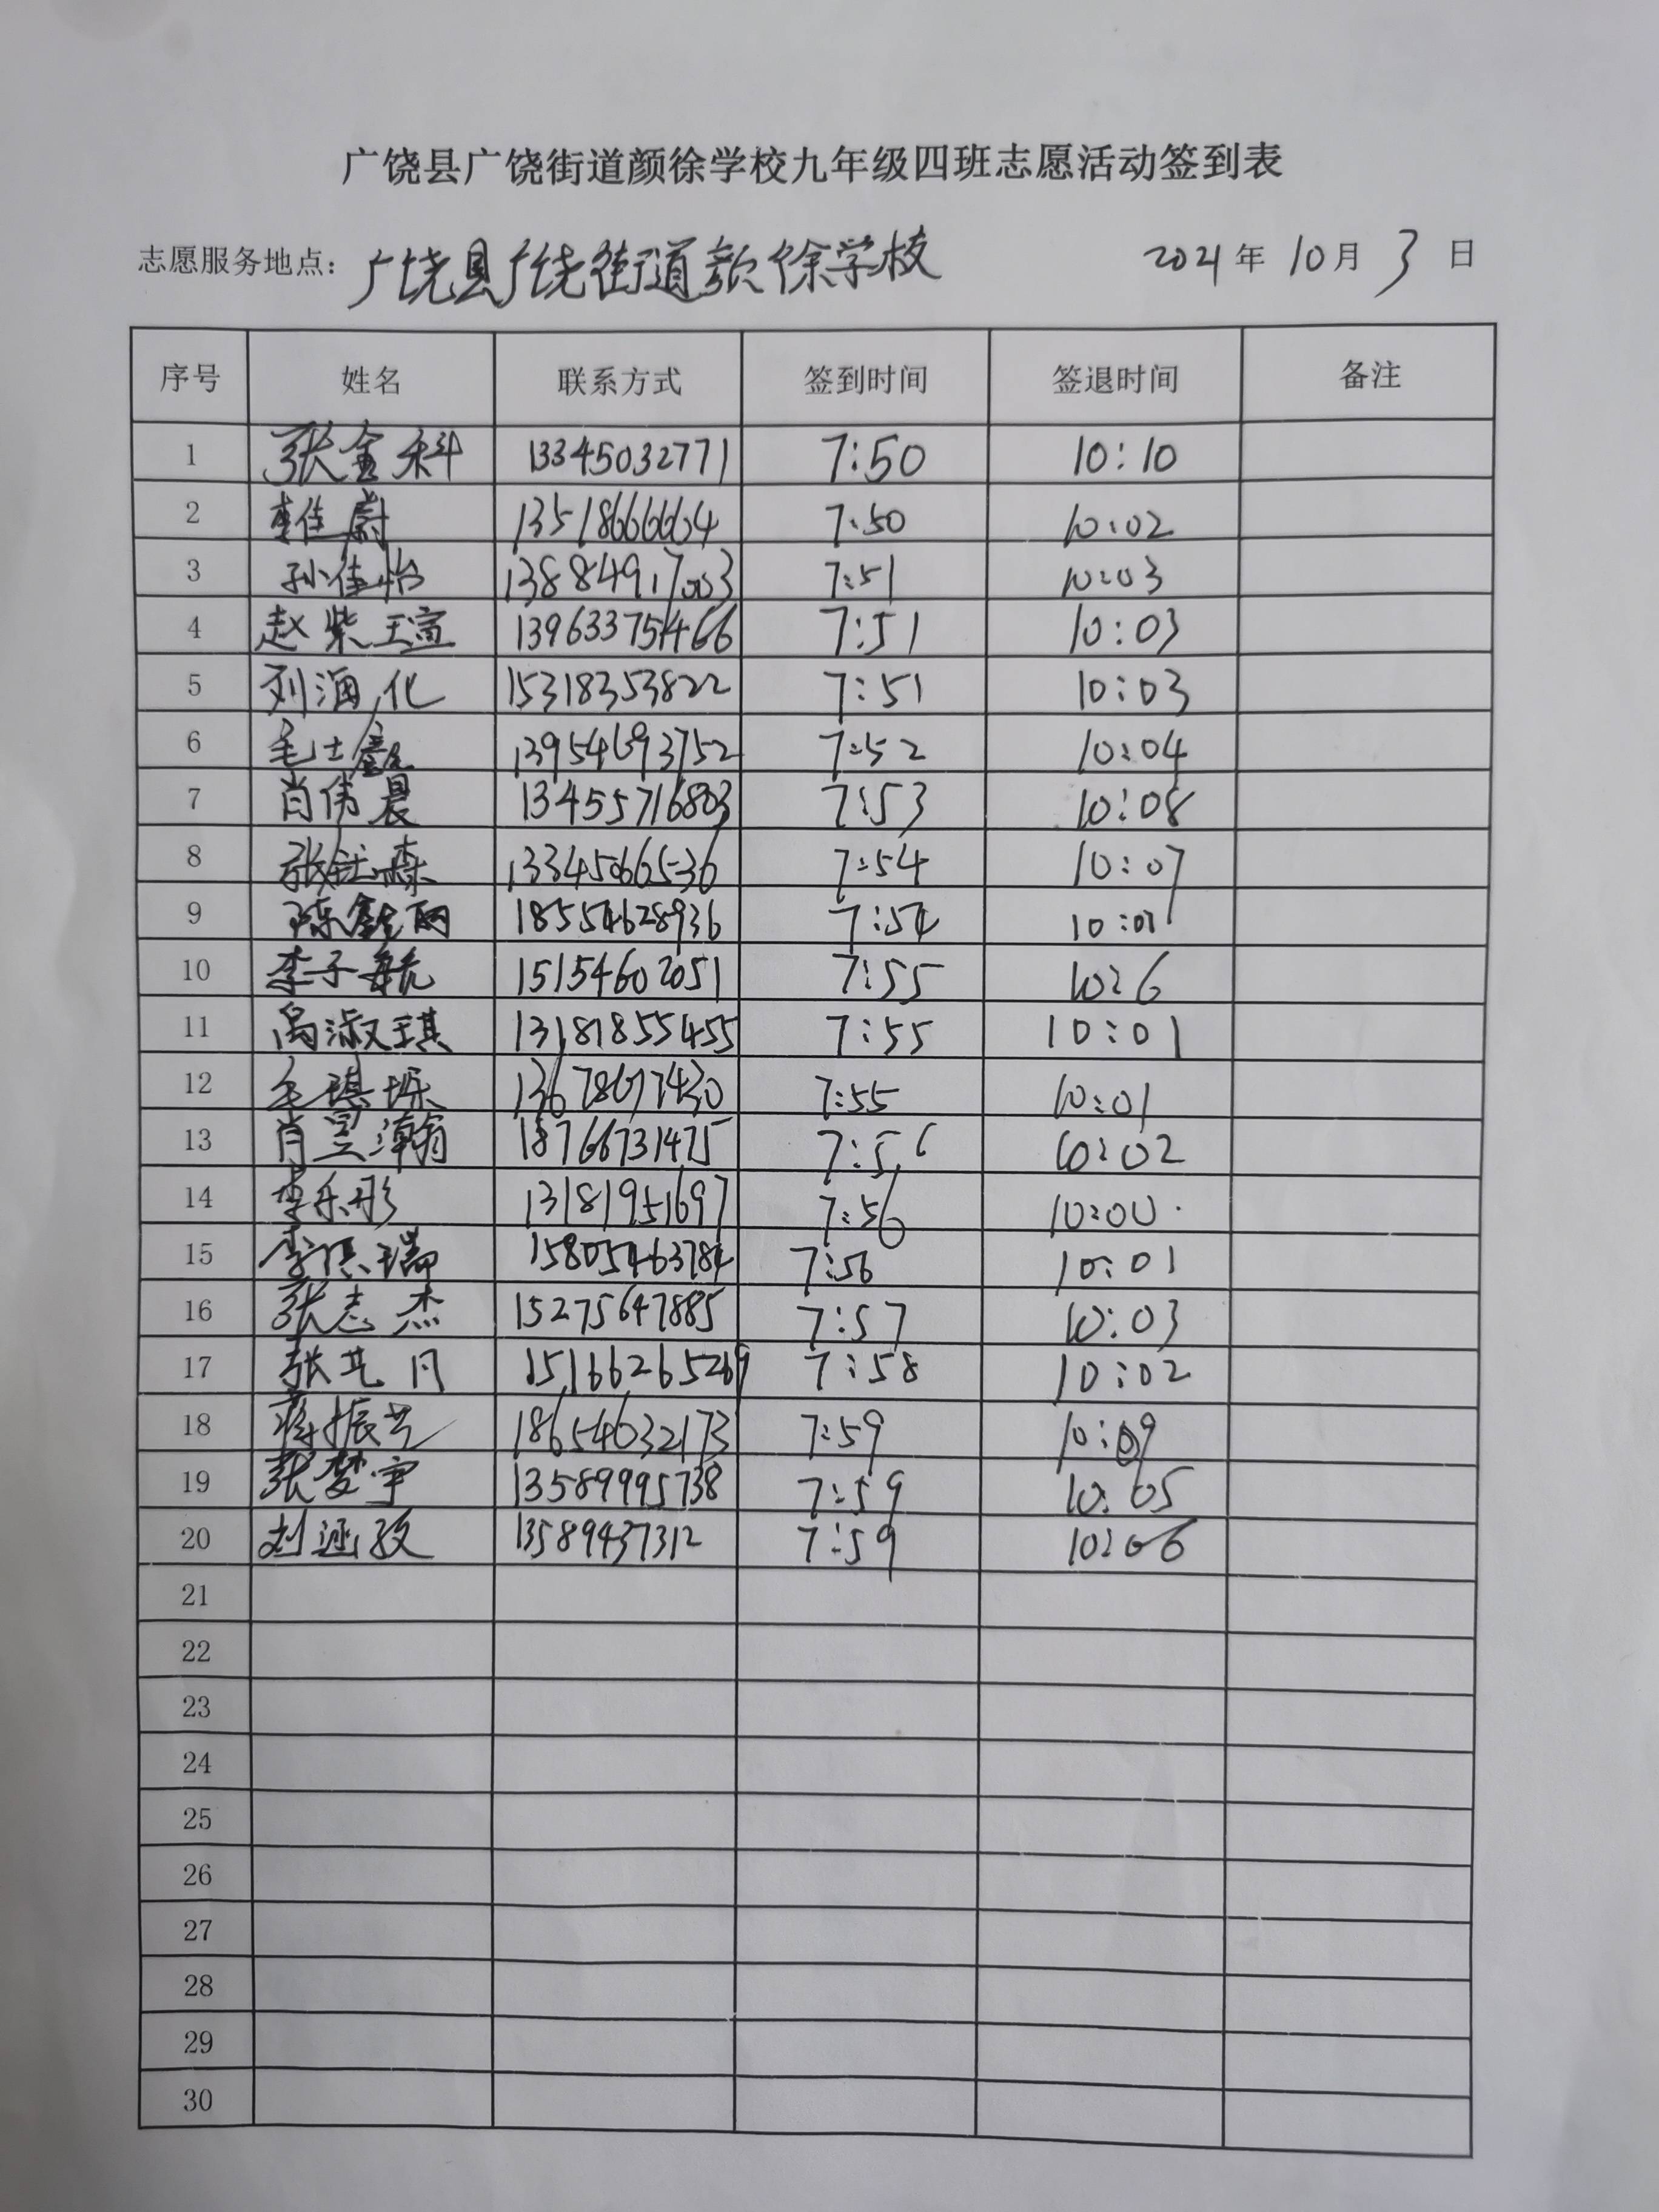 广饶县广饶街道颜徐学校九年级四班志愿活动签到表
志愿服务地点：广饶县广饶街道颜徐学校 2021年10月3日
序号 姓名 联系方式 签到时间 签退时间 备注
1 张金科 13345032771 7:50 10:10
2 李佳蔚 13518666664 7:50 10:02
3 孙佳怡 13884917003 7:51 10:03
4 赵紫瑄 13963375466 7:51 10:03
5 刘海化 15318353822 7:51 10:03
6 毛士鑫 13954693752 7:52 10:04
7 肖伟晨 13455716803 7:53 10:08
8 张钰森 13345066536 7:54 10:07
9 陈鑫雨 18554628936 7:54 10:01
10 李子航 15154602051 7:55 10:6
11 禹淑琪 13181855455 7:55 10:01
12 毛琪烁 13678677430 7:55 10:01
13 肖昱瀚 18766731475 7:56 10:02
14 李乐彤 13181951697 7:56 10:00
15 李淇瑞 15805463784 7:56 10:01
16 张志杰 15275647885 7:57 10:03
17 张艺月 15166265269 7:58 10:02
18 蒋振兴 18654632173 7:59 10:09
19 张梦宇 13589995738 7:59 10:05
20 刘涵孜 13589437312 7:59 10:06
21
22
23
24
25
26
27
28
29
30